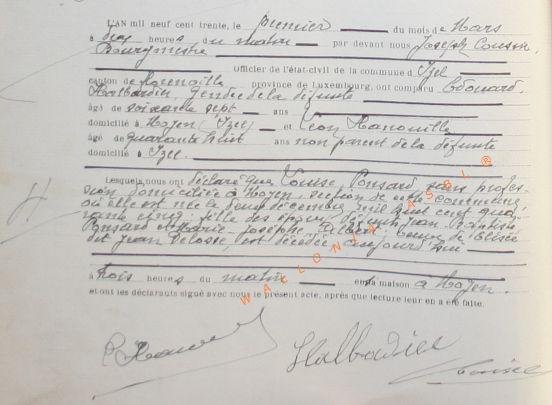 L'AN mil neuf cent trente, le premier du mois de Mars
à dix heures du matin par devant nous Joseph
Bourgmestre
Officier de l'état-civil de la commune d'Izel
canton de Florenville province de Luxembourg, ont comparu Edouard
Halbardier, gendre de la défunte
âgé de soixante sept ans
domicilié à Moyen (Izel) et Léon Hanouille
âgé de quarante huit ans non parent de la défunte
domicilié à Izel.
Lesquels nous ont déclaré que Louise Ponsard sans profes-
sion domiciliée à Moyen, section de cette commune,
où elle est née le deux décembre mil huit cent qua-
rante cinq; fille des époux défunts Jean Baptiste
Ponsard et Marie-Josèphe veuve de
Jean est décédée aujourd'hui
à trois heures du matin en sa maison à Moyen.
et ont les déclarants signé avec nous le présent acte, après que lecture leur en a été faite.
Halbardier
WALLONIA ASBL ©